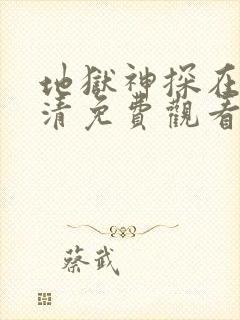 地獄神探在
清免費觀看
蔡武